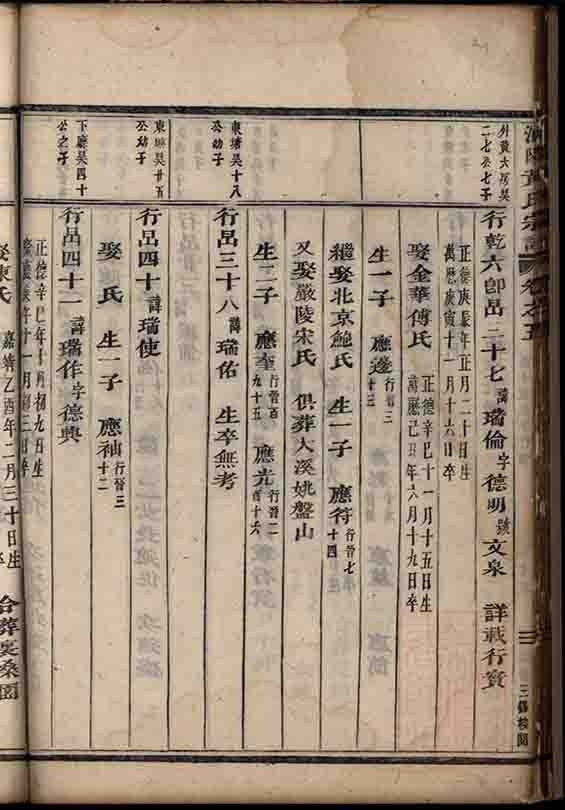 黃氏宗譜 卷之五
外黃大房吳
二七公七子
行乾六即品三十七 諱瑞倫字德明號文泉 詳載行實
正德庚辰年正月二十日生
萬歷庚寅十一月十六日卒
娶金華傅氏
正德辛巳十一月十五日生
萬歷己丑年六月十九日卒
生一子 應邊 行晉三
十三
繼娶北京鮑氏 生一子 應符 行晉七
十四
又娶嚴陵宋氏 俱葬大溪姚盤山
東塘吳十八
公幼子
生二子 應奎 行晉百
九十五
應光 行晉二
百十六
行品三十八 諱瑞佑 生卒無考
東塘吳廿五
公幼子
行品四十 諱瑞使
娶氏 生一子 應袖 行晉三
十二
下廳吳四十
公之子
行品四十一 諱瑞作字德興
正德辛巳年十月初九日生
年十一月初三日卒
娶陳氏
嘉靖乙酉年二月三十日生
合葬裏桑園